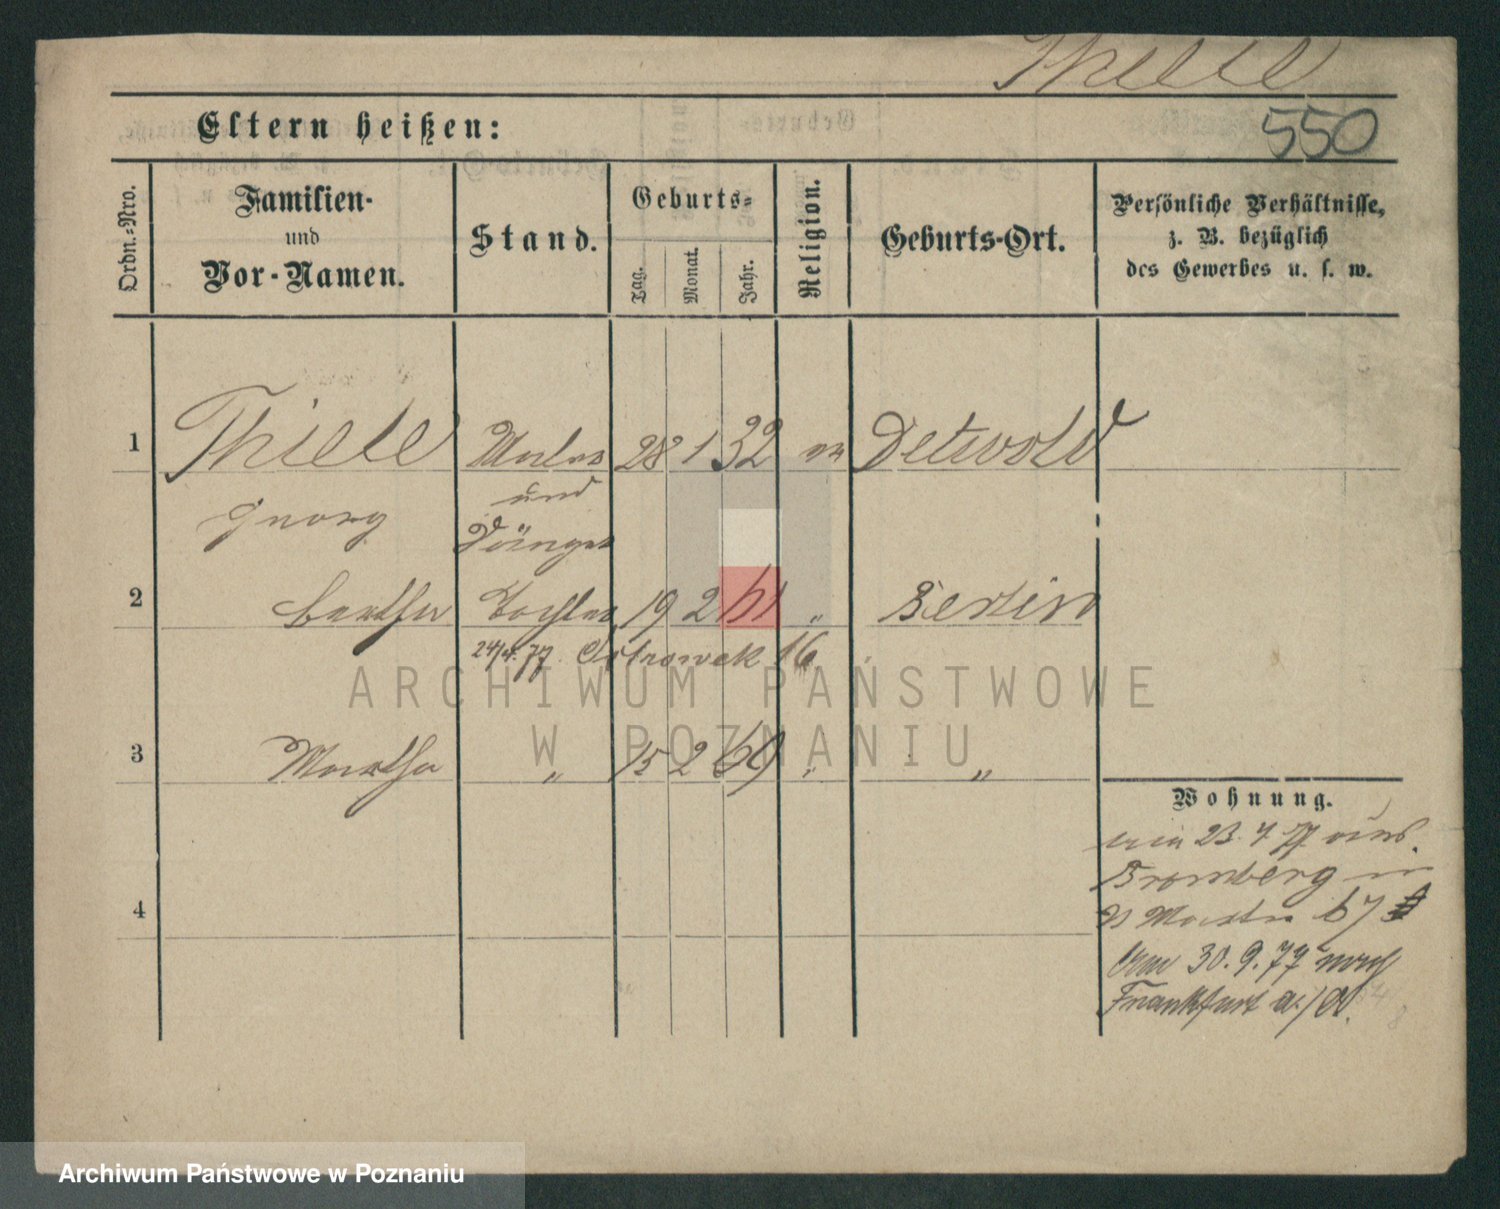 Thiele
550
Eltern heißen:
Ordn.-Nro.
Familien-
und
Vor-Namen.
Stand.
Geburts-
Tag.
Monat.
Jahr.
Religion.
Geburts-Ort.
Persönliche Verhältnisse,
z. B. bezüglich
des Gewerbes u. s. w.
1 Thiele Maler 28 1 32 ev Detmold
Georg und
Sänger
2 Bertha Tochter 19 2 61 " Berlin
24/4. 77. Ostrowek 16
3 Martha " 15 2 69 " "
4
Wohnung.
23. 4. 77 aus
Bromberg
67
Am 30. 9. 77 nach
Frankfurt a./O.
ARCHIWUM PAŃSTWOWE
W POZNANIU
Archiwum Państwowe w Poznaniu